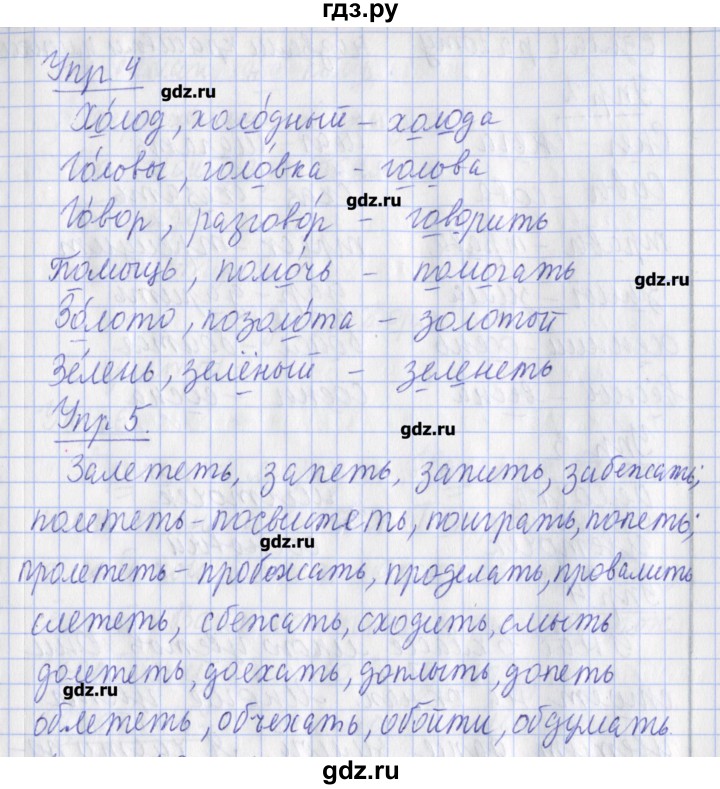 гдз.ру
Упр 4
gdz.ru
Хо́лод, холо́дный – холода
Го́ловы, голо́вка – голова
gdz.ru
Го́вор, разгово́р – говорить
Помощь, помо́чь – помогать
gdz.ru
Зо́лото, позоло́та – золотой
Зе́лень, зелёный – зеленеть
Упр 5.
gdz.ru
Залететь, запеть, запить, забежать;
полететь – посвистеть, поиграть, попеть;
gdz.ru
пролететь – пробежать, проделать, провалить
слететь, сбежать, сходить, смыть
долететь, доехать, доплыть, допеть
gdz.ru
облететь, объехать, обойти, обдумать.
gdz.ru